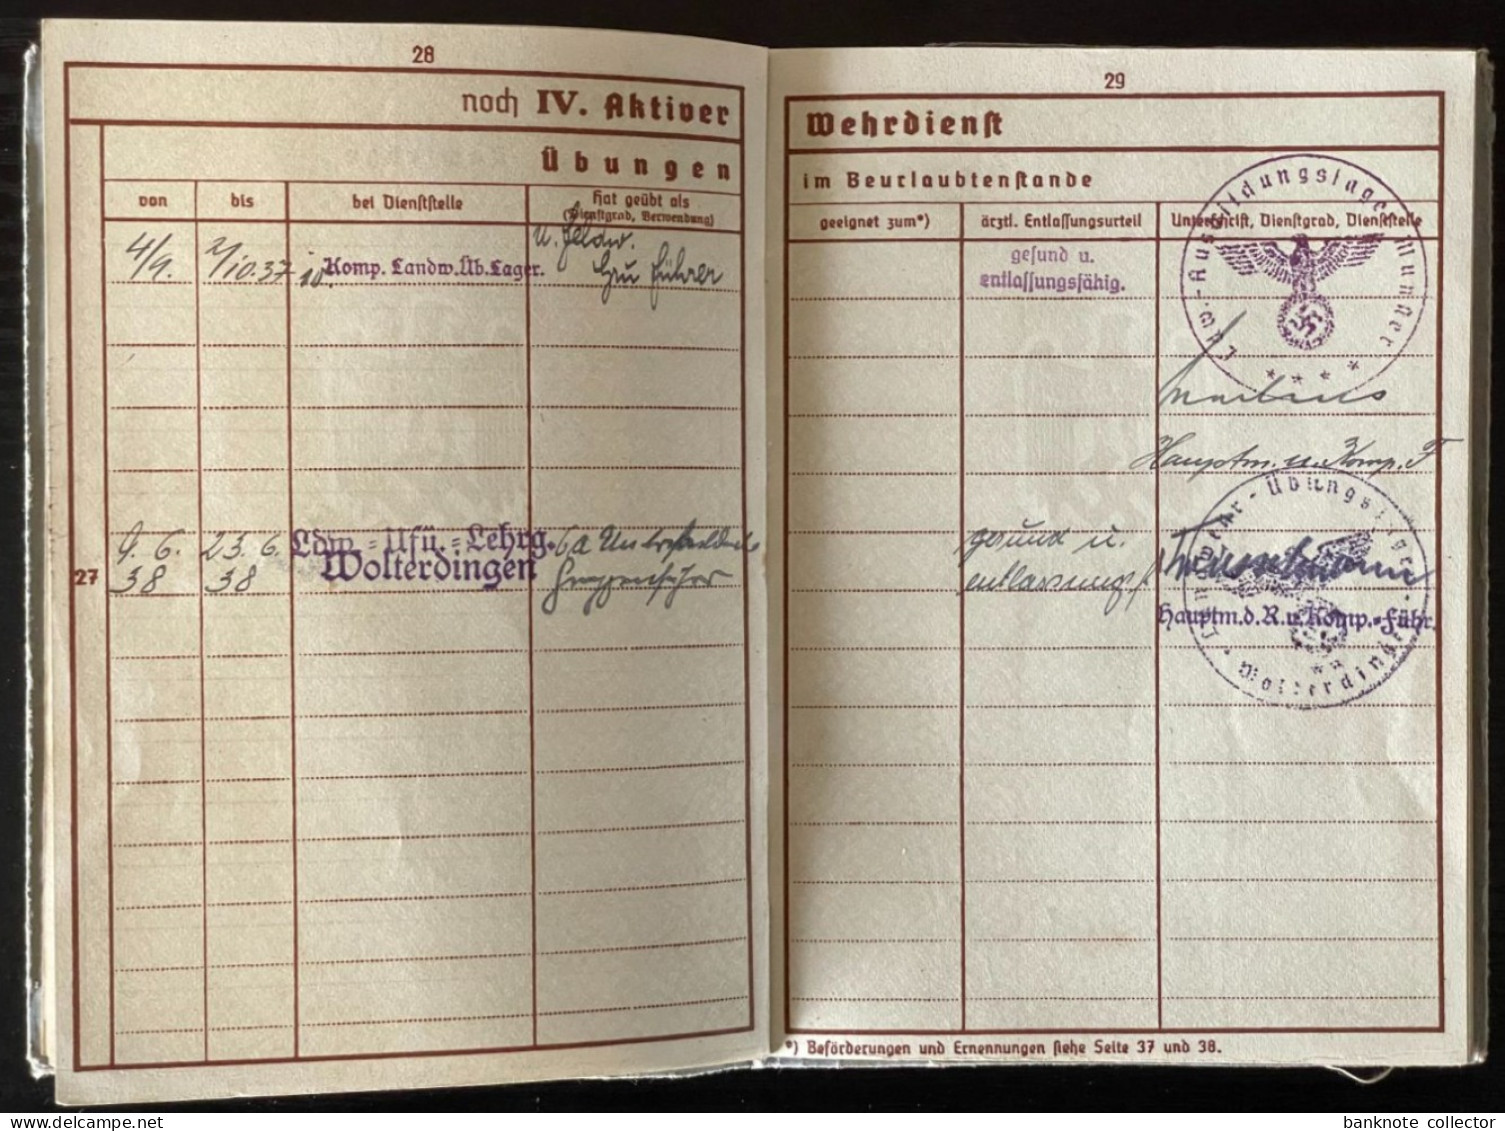 28
noch IV. Aktiver
Übungen
von bis bei Dienststelle Hat geübt als
(Dienstgrad, Verwendung)
4/9. 2/10.37 10. Komp. Landw.Üb.Lager. U. Feldw.
Gru führer
9. 6. 23. 6. Ldw.-Usü.-Lehrg.
27 38 38 Wolterdingen Gruppenführer
29
Wehrdienst
im Beurlaubtenstande
geeignet zum*) ärztl. Entlassungsurteil Unterschrift, Dienstgrad, Dienststelle
gesund u.
entlassungsfähig.
Ldw.-Ausbildungslager Munster
Hauptm. u. Komp. F
gesund u.
entlassungsf
Hauptm.d.R.u.Komp.-Führ.
Landwehr-Übungslager
Wolterdingen
*) Beförderungen und Ernennungen siehe Seite 37 und 38.
banknote collector